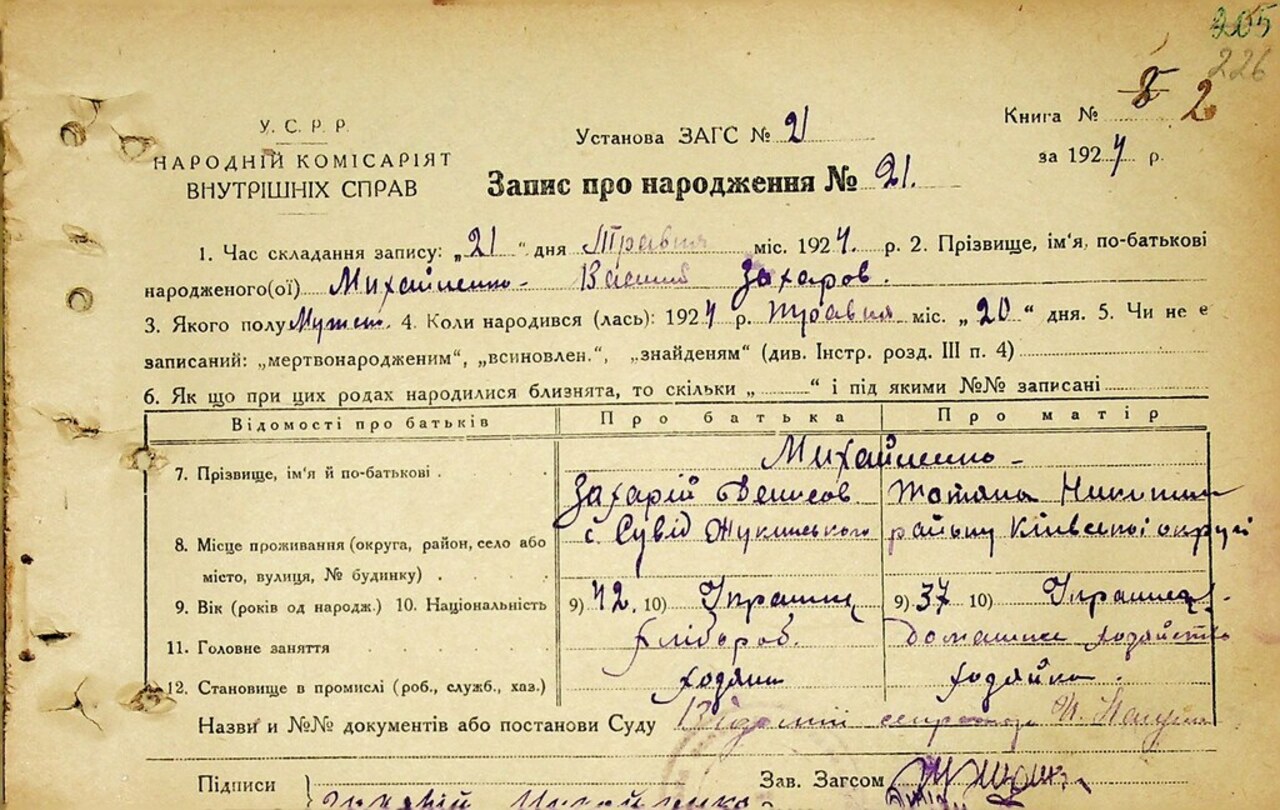 205
226
У. С. Р. Р.
НАРОДНІЙ КОМІСАРІЯТ
ВНУТРІШНІХ СПРАВ
Установа ЗАГС № 21
Книга № 8 2
за 1924 р.
Запис про народження № 21.
1. Час складання запису: „21“ дня Травня міс. 1924. р. 2. Прізвище, ім'я, по-батькові
народженого(ої) Михайленко Василь Захаров.
3. Якого полу Мужеск. 4. Коли народився (лась): 1924 р. травня міс. „20“ дня. 5. Чи не є
записаний: „мертвонародженим“, „всиновлен.“, „знайденям“ (див. Інстр. розд. III п. 4)
6. Як що при цих родах народилися близнята, то скільки „ “ і під якими №№ записані
Відомості про батьків Про батька Про матір
7. Прізвище, ім'я й по-батькові Михайленко
Захарій Денисов Татяна
8. Місце проживання (округа, район, село або с. Сувід Жукинського району Київської округі
місто, вулиця, № будинку)
9. Вік (років од народж.) 10. Національність 9) 42. 10) Українц 9) 37 10) Українка
11. Головне заняття хлібороб. домашнє хозяйство
12. Становище в промислі (роб., служб., хаз.) хозяин хозяйка.
Назви и №№ документів або постанови Суду секретаря
Підписи Зав. Загсом
Захарій Михайленко